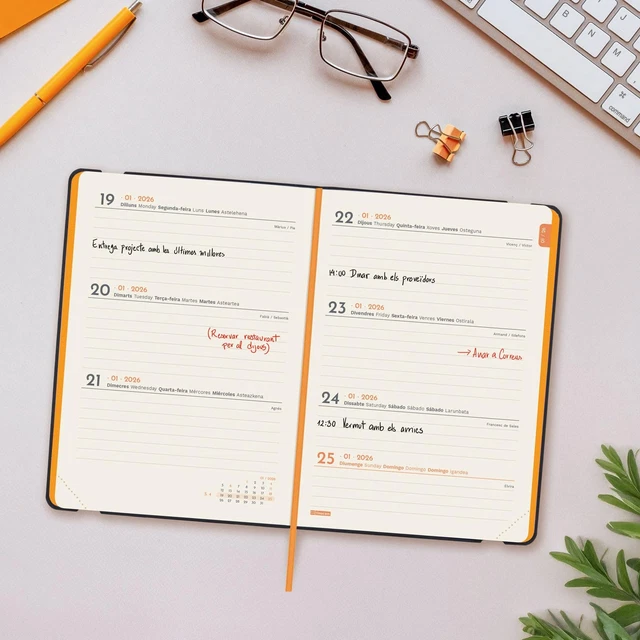 B
N
J
M
⌘
command
19 · 01 · 2026
Dilluns Monday Segunda-feira Luns Lunes Astelehena
Màrius / Pia
Entrega projecte amb les últimes millores
20 · 01 · 2026
Dimarts Tuesday Terça-feira Martes Martes Asteartea
Fabià / Sebastià
(Reservar restaurant
per al dijous)
21 · 01 · 2026
Dimecres Wednesday Quarta-feira Mércores Miércoles Asteazkena
Agnès
22 · 01 · 2026
Dijous Thursday Quinta-feira Xoves Jueves Osteguna
Vicenç / Víctor
14:00 Dinar amb els proveïdors
23 · 01 · 2026
Divendres Friday Sexta-feira Venres Viernes Ostirala
→ Anar a Correus
24 · 01 · 2026
Dissabte Saturday Sábado Sábado Sábado Larunbata
Francesc de Sales
12:30 Vermut amb els amics
25 · 01 · 2026
Diumenge Sunday Domingo Domingo Domingo Igandea
Elvira